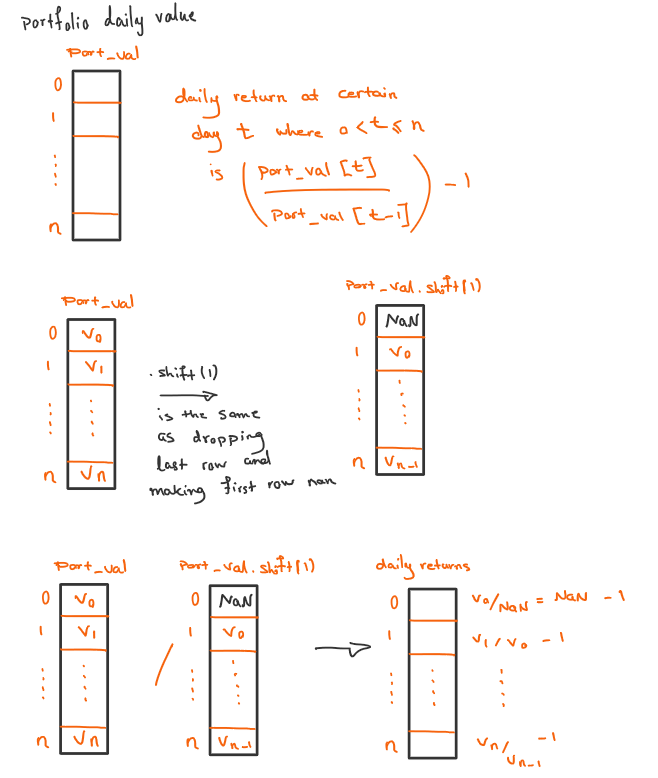 portfolio daily value
port_val
0
1
n
daily return at certain
day t where 0 < t ≤ n
is ( port_val [t] / port_val [t-1] ) - 1
port_val
0 V₀
1 V₁
n Vn
.shift(1)
is the same
as dropping
last row and
making first row nan
port_val.shift(1)
0 NaN
1 V₀
n Vn-1
port_val
0 V₀
1 V₁
n Vn
/
port_val.shift(1)
0 NaN
1 V₀
n Vn-1
daily returns
0 V₀/NaN = NaN - 1
1 V₁/V₀ - 1
n Vn/Vn-1 - 1